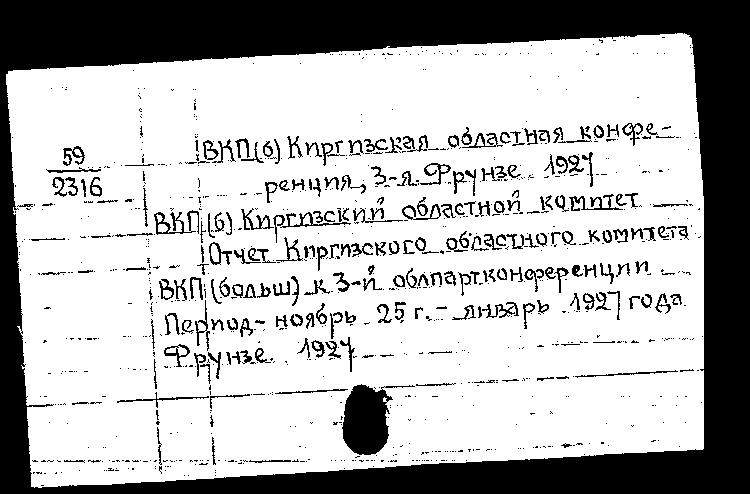 59
2316
ВКП(б) Киргизская областная конфе-
ренция, 3-я. Фрунзе. 1927
ВКП(б) Киргизский областной комитет
Отчет Киргизского областного комитета
ВКП(больш) к 3-й облпартконференции
Период - ноябрь 25 г. - январь 1927 года
Фрунзе. 1927